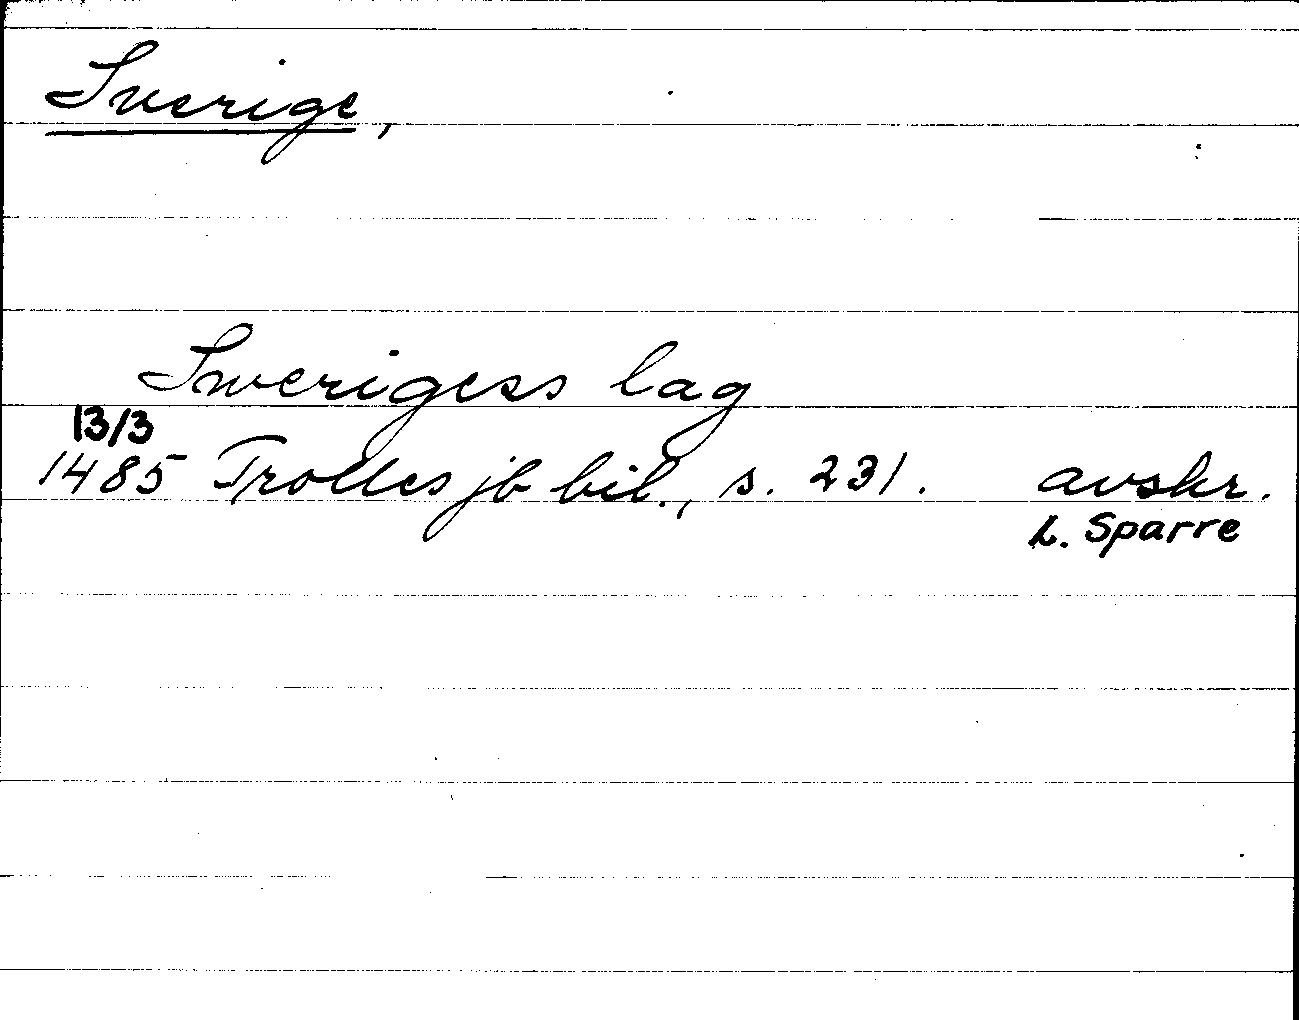 Sverige,
Swerigess lag
13/3
1485 Trolles jb bil., s. 231. avskr.
L. Sparre